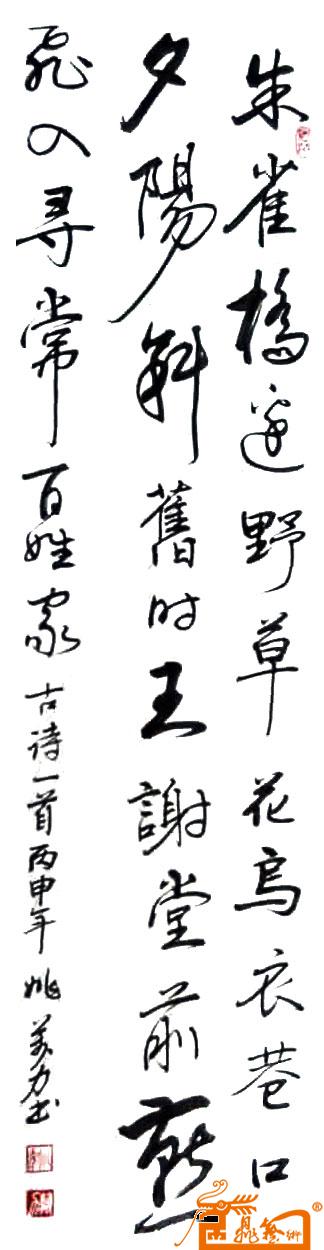 朱雀橋邊野草花烏衣巷口
夕陽斜舊时王謝堂前燕
飛入尋常百姓家古诗一首丙申年姚美力书